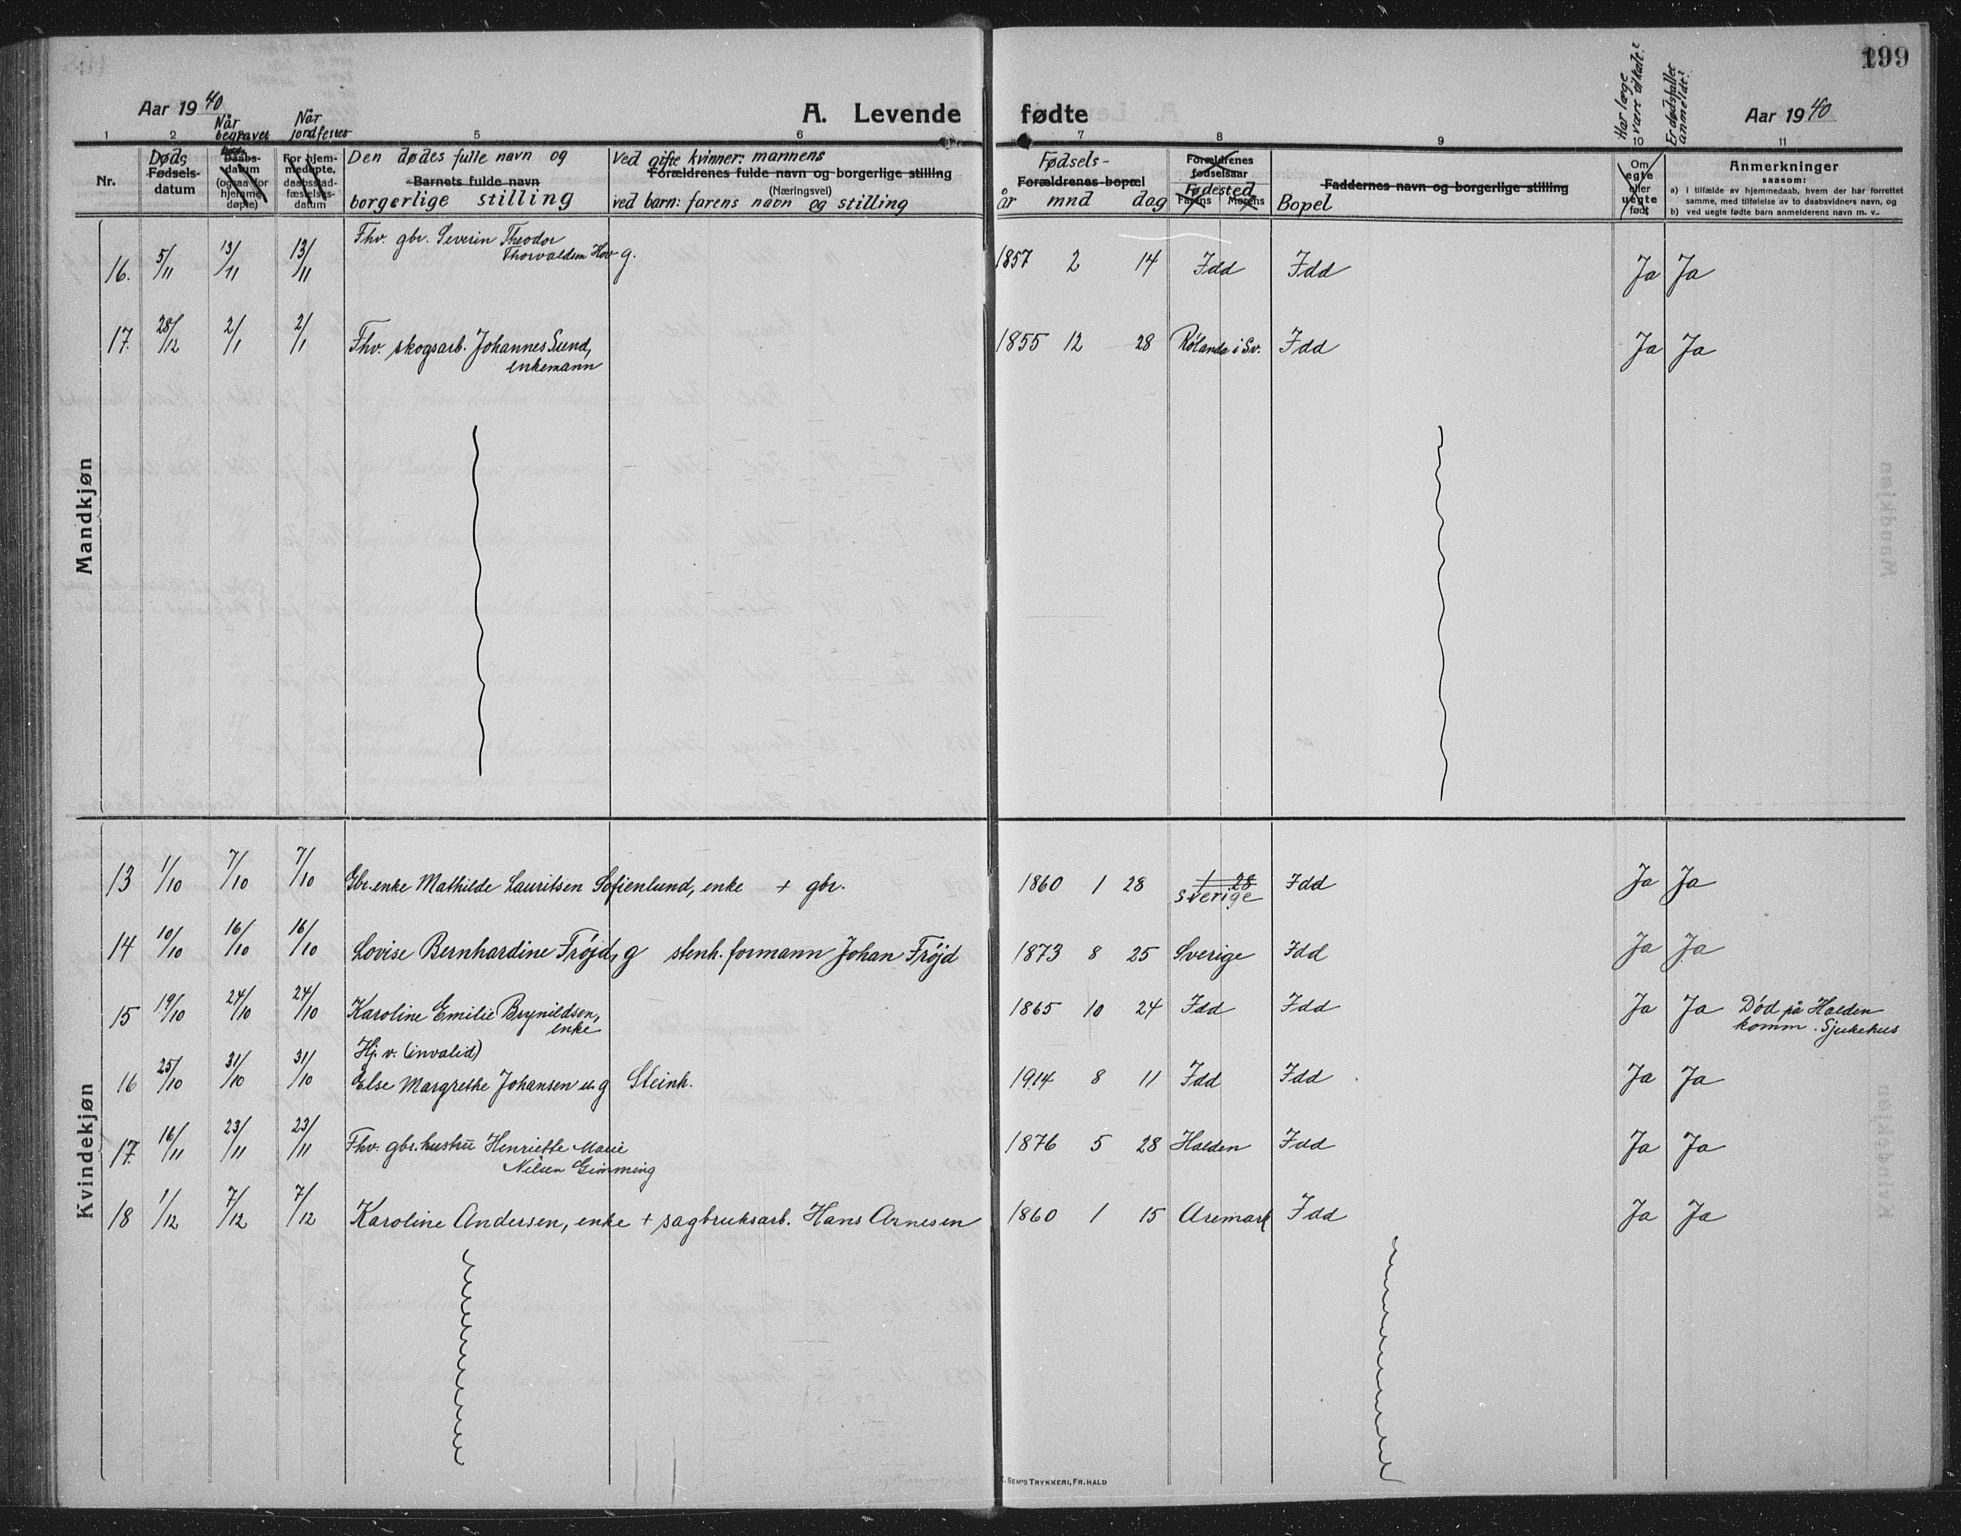 199
Aar 1940
A. Levende fødte
Aar 1940
Når begravet
Når jordfestet
Har læge vært tilkalt?
Er dødsfallet anmeldt?
1 2 5 6 7 8 9 10 11
Nr.
Døds
Fødsels-
datum
Daabs-
datum
(ogsaa for
hjemme
døpte)
For hjem-
medøpte,
daabsstad-
fæstelses-
datum
Den dødes fulle navn og
Barnets fulde navn
borgerlige stilling
Ved gifte kvinner: mannens
Forældrenes fulde navn og borgerlige stilling
(Næringsvei)
ved barn: farens navn og stilling
Fødsels-
Forældrenes bopæl
år mnd dag
Forældrenes
fødselsaar
Fødested
Farens Morens
Faddernes navn og borgerlige stilling
Bopel
Om
egte
eller
uegte
født
Anmerkninger
saasom:
a) I tilfælde av hjemmedaab, hvem der har forrettet
samme, med tilføielse av to daabsvidners navn, og
b) ved uegte fødte barn anmelderens navn m. v.
Mandkjøn
16. 5/11 13/11 13/11 Fhv. gbr. Severin Theodor
Thorvaldsen Hov g. 1857 2 14 Idd Idd Ja Ja
17. 28/12 2/1 2/1 Fhv. skogsarb. Johannes Lund,
enkemann 1855 12 28 Rølanda i Sv. Idd Ja Ja
Kvindekjøn
13 1/10 7/10 7/10 Gbr.enke Mathilde Lauritsen Sofienlund, enke + gbr. 1860 1 28 1 28 Idd Ja Ja
Sverige
14 10/10 16/10 16/10 Lovise Bernhardine Frøjd, g stenh. formann Johan Frøjd 1873 8 25 Sverige Idd Ja Ja
15 19/10 24/10 24/10 Karoline Emilie Brynildsen, 1865 10 24 Idd Idd Ja Ja Død på Halden
enke komm. Sjukehus
Hj. v. (invalid)
16 25/10 31/10 31/10 Else Margrethe Johansen u.g Steinh. 1914 8 11 Idd Idd Ja Ja
17. 16/11 23/11 23/11 Fhv. gbr. hustru Henriette Marie 1876 5 28 Halden Idd Ja Ja
Nilsen Gimming
18 1/12 7/12 7/12 Karoline Andersen, enke + sagbruksarb. Hans Arnesen 1860 1 15 Aremark Idd Ja Ja
E. SEMS TRYKKERI, FR.HALD